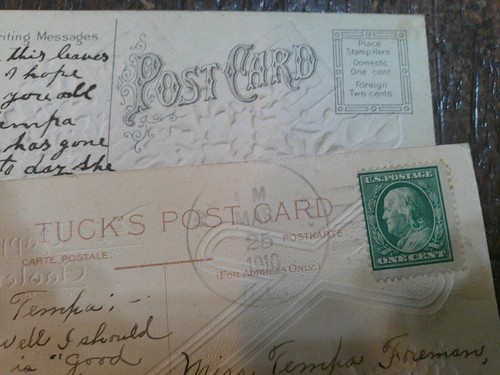 riting Messages
this leaves
I hope
you all
Tempa
has gone
to day she
POST CARD
Place
Stamp Here
Domestic
One cent
Foreign
Two cents
TUCK'S POST CARD
CARTE POSTALE.
POSTKARTE
(FOR ADDRESS ONLY.)
M
25
1910
U.S. POSTAGE
ONE CENT
Tempa; -
well I should
is "good
Miss Tempa Foreman,